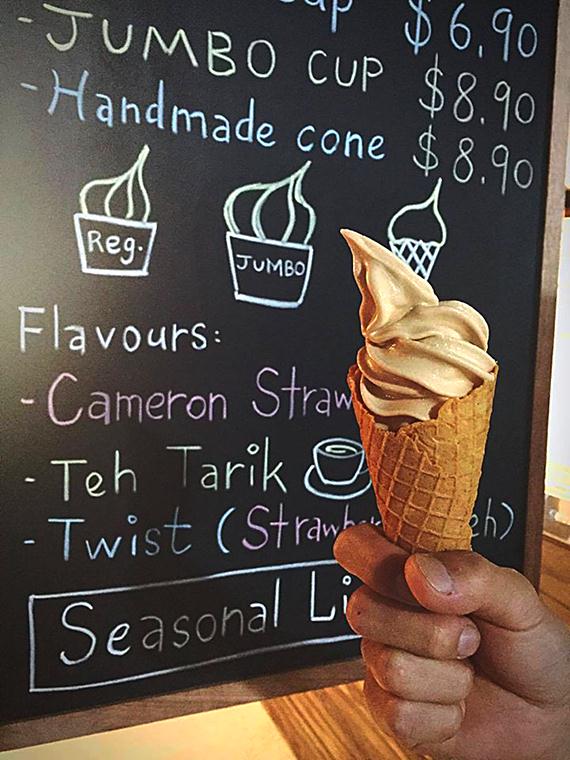 cup $6.90
- JUMBO CUP $8.90
- Handmade cone $8.90
Reg. JUMBO
Flavours:
- Cameron Straw
- Teh Tarik
- Twist (Strawber eh)
Seasonal Li